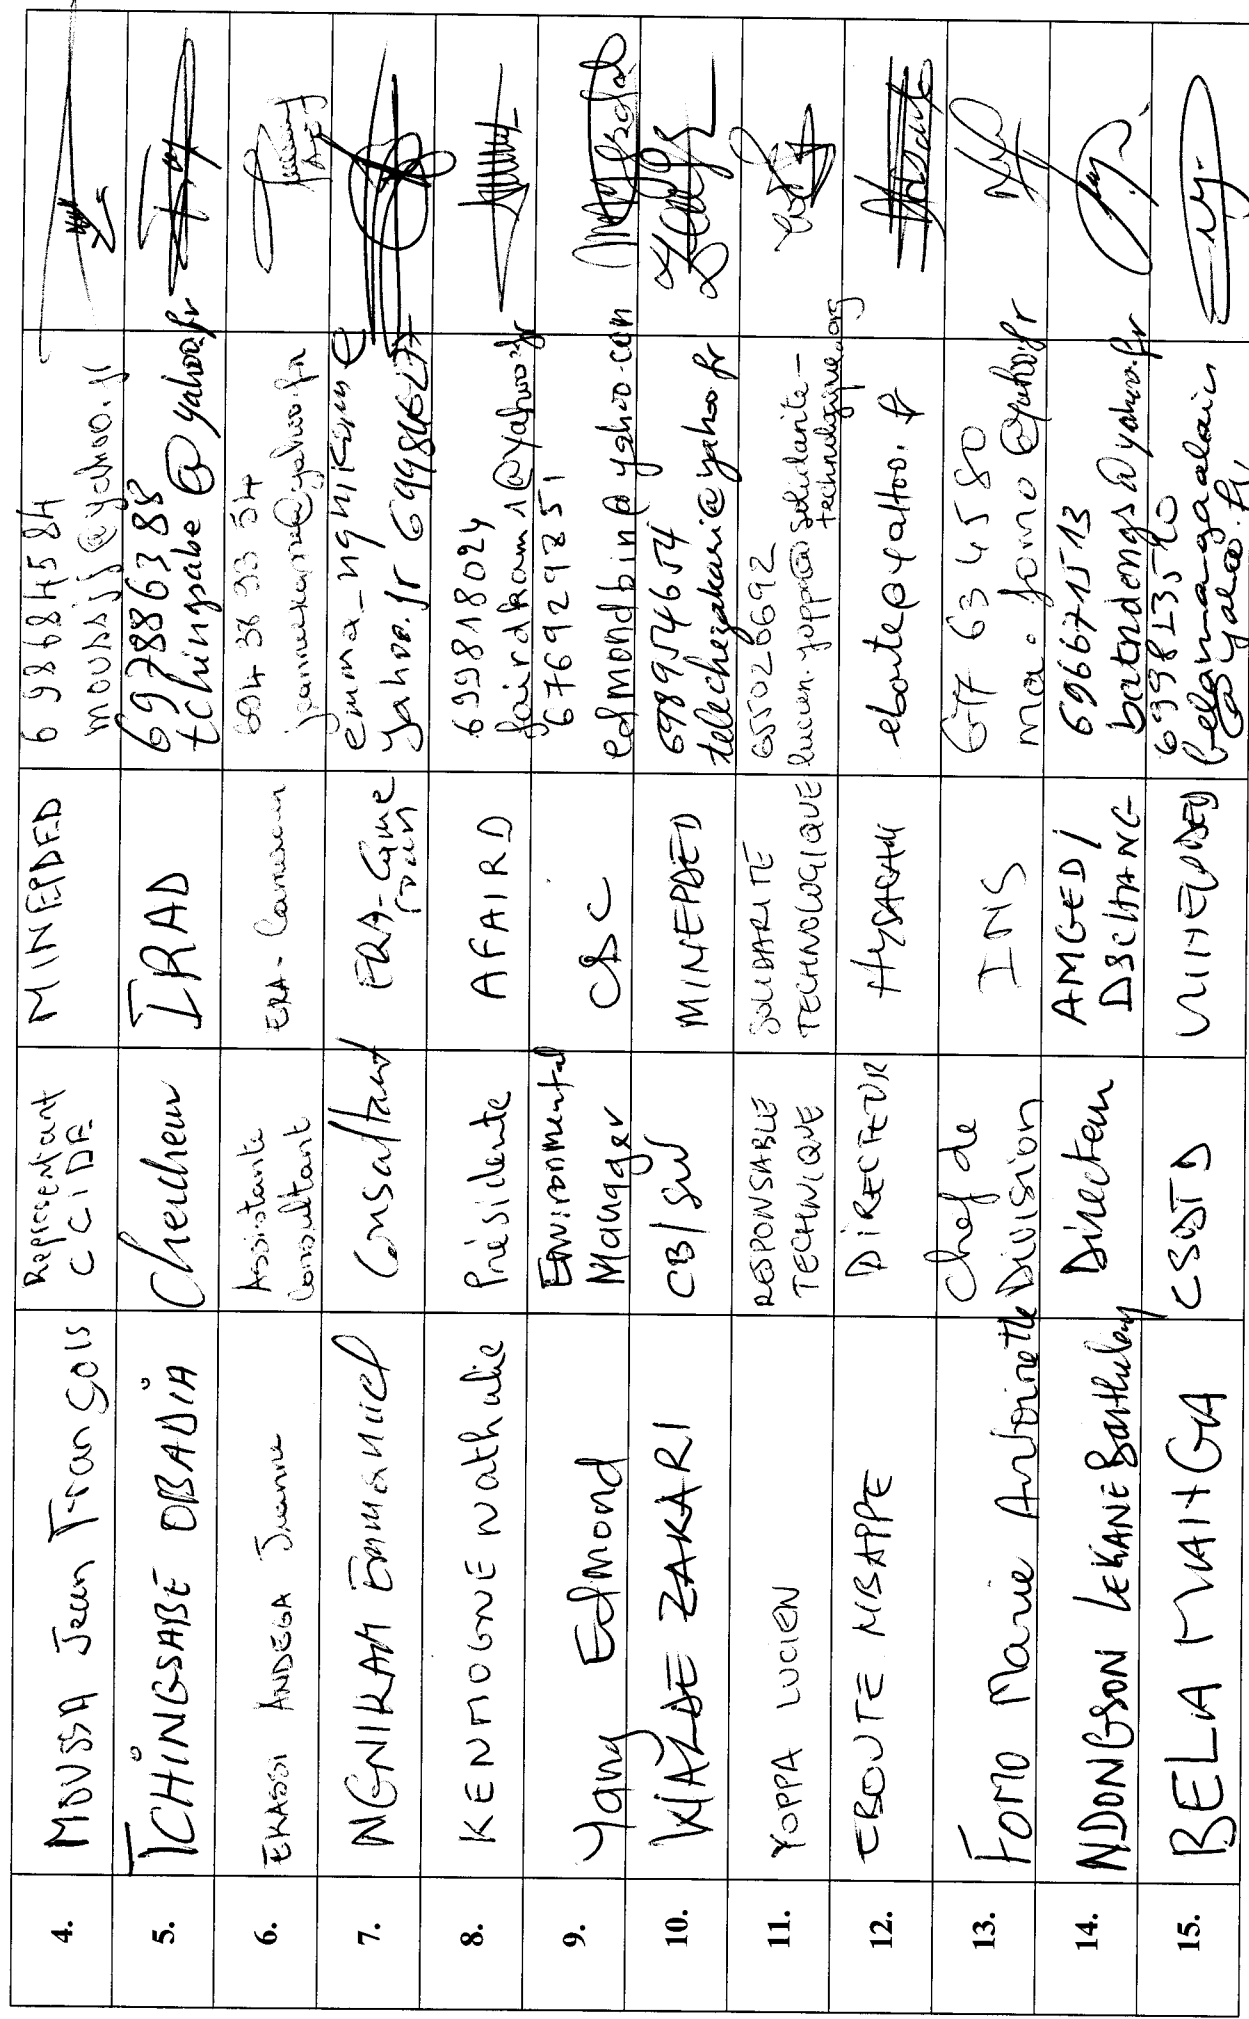 4.
MOUSSA Jean François
Représentant
CCIDE
MINEPDED
698684584
moussjj@yahoo.fr
5.
TCHINGSABE OBADIA
Chercheur
IRAD
697886388
tchingsabe@yahoo.fr
6.
EKASSI ANDEGA Jeanne
Assistante
Consultant
ERA-Cameroun
jeannekapre@yahoo.fr
7.
NGNIKAM Emmanuel
Consultant
ERA-Came
roun
emma_ngnikam@
yahoo.fr 699846277
8.
KENMOGNE Nathalie
Présidente
AFAIRD
699818024
fairdkam1@yahoo.fr
9.
Yang Edmond
Environmental
Manager
CDC
676929851
edmondbin@yahoo.com
10.
WIALDE ZAKARI
CB/SW
MINEPDED
698954654
telechezakari@yahoo.fr
11.
YOPPA LUCIEN
RESPONSABLE
TECHNIQUE
SOLIDARITE
TECHNOLOGIQUE
655020692
lucien.yoppa@solidarite-
technologique.org
12.
EBOUTE MBAPPE
DIRECTEUR
HYSACAM
eboute@yahoo.fr
13.
FOMO Marie Antoinette
Chef de
Division
INS
677634580
ma.fomo@yahoo.fr
14.
NDONGSON LEKANE Barthelemy
Directeur
AMGED/
DSCHANG
696671513
batndongs@yahoo.fr
15.
BELA MAHGA
CSDTD
MINEPDED